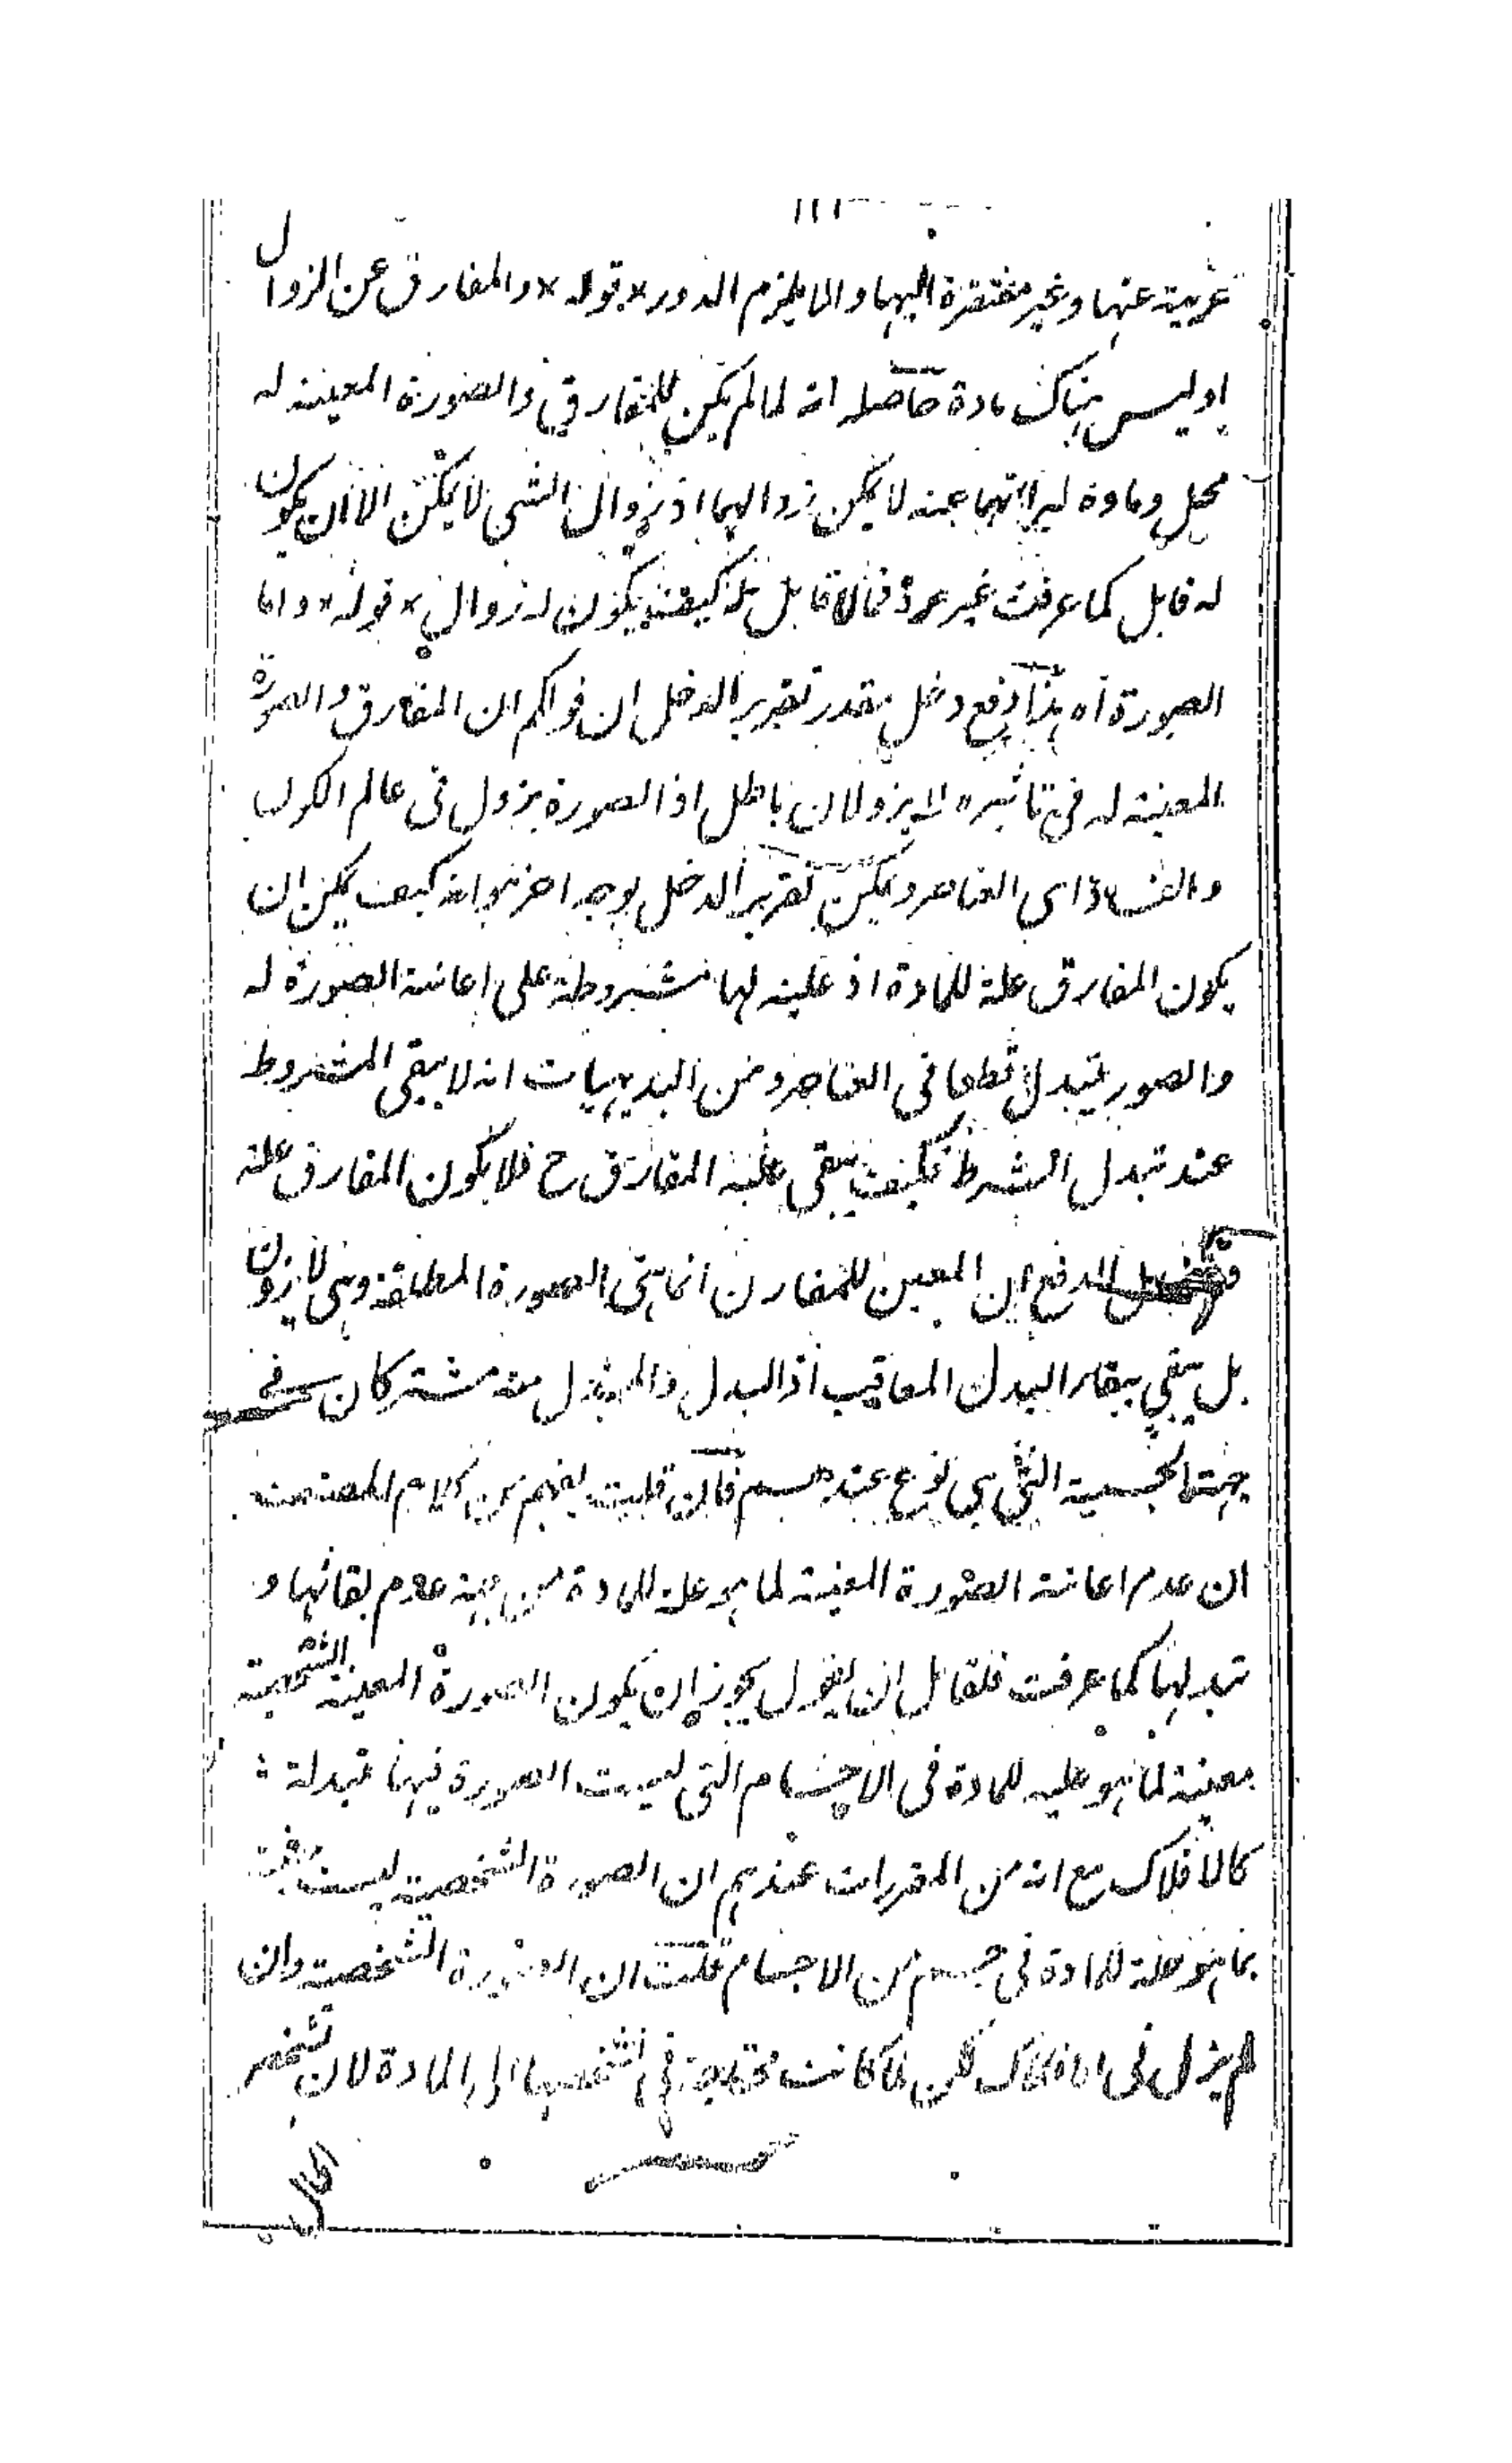 عرية عنها وغير مفتقرة اليها والا يلزم الدور * قوله * والمفارق عن الزوال
اذ ليس هناك مادة حاصله انه لما لم يكن للمفارق والصورة المعينة له
محل ومادة لبرائتهما عنه لا يمكن زوالهما اذ زوال الشى لا يمكن الا ان يكون
له قابل كما عرفت غير مرة فما لا قابل له كيف يكون له زوال * قوله * واما
الصورة اه هذا دفع دخل مقدر تقرير الدخل ان قولكم ان المفارق والصورة
المعينة له فى تاثيره لا يزولان باطل اذ الصورة يزول فى عالم الكون
والفساد اى العناصر ويمكن تقرير الدخل بوجه اخر هو انه كيف يمكن ان
يكون المفارق علة للمادة اذ علية لها مشروطة على اعانة الصورة له
والصور يتبدل قطعا فى العناصر ومن البديهيات انه لا يبقى المشروط
عند تبدل الشرط فكيف يبقى علية المفارق ح فلا يكون المفارق علة
الدفع ان المعين للمفارق انما هى الصورة المطلقة وهى لا يزول
بل يبقى ببقاء البدل المعاقب اذ البدل والمبدل منه مشتركان فى
جهة الجسمية التى هى نوع عندهم فان قلت يفهم من كلام المصنف
ان عدم اعانة الصورة المعينة لما هو علة للمادة من جهة عدم بقائها و
تبدلها كما عرفت فلقائل ان يقول يجوز ان يكون الصورة المعينة الشخصية
معينة لما هو علية للمادة فى الاجسام التى ليست الصورة فيها متبدلة
كالافلاك مع انه من المقررات عندهم ان الصورة الشخصية ليست
لما هو علة للمادة فى جسم من الاجسام قلت ان الصورة الشخصية وان
لم يزل فى الافلاك لكن لما كانت محتاجة فى تشخصها الى المادة لان تشخص
الحال